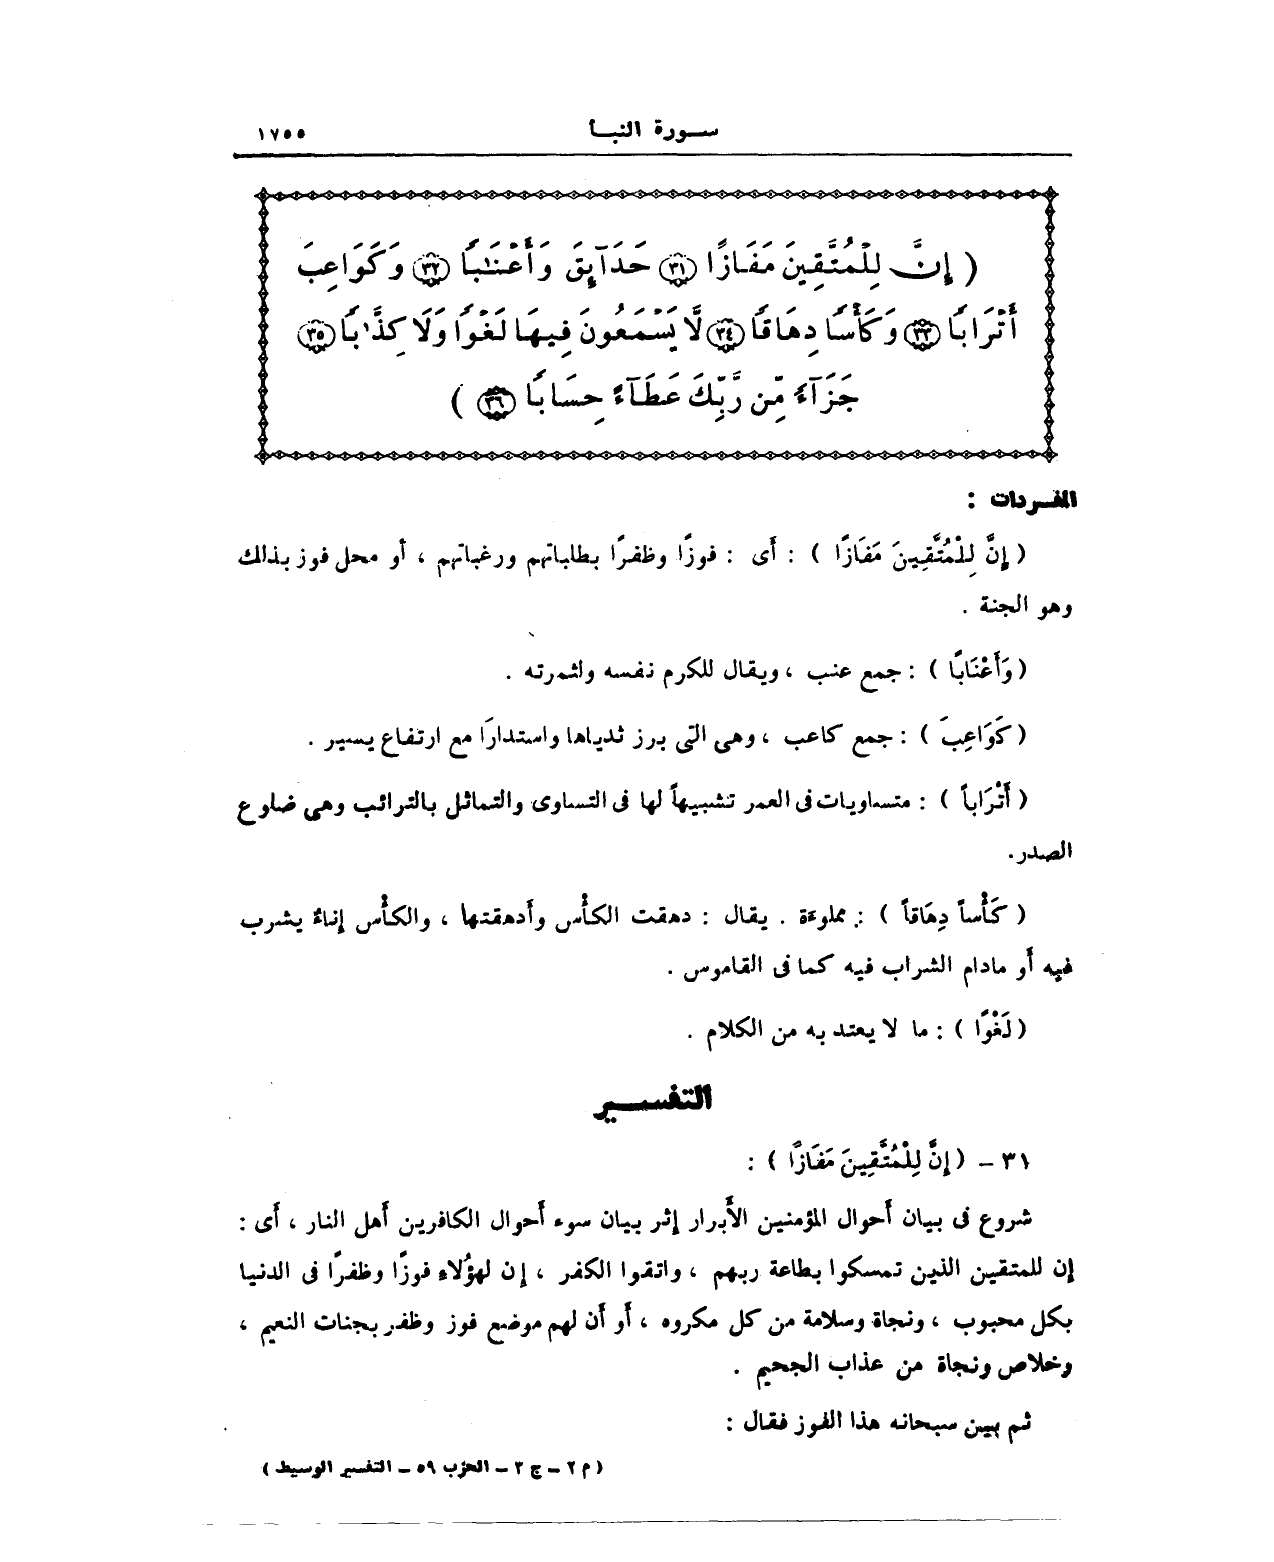 سورة النبأ ١٧٥٥
( إِنَّ لِلْمُتَّقِينَ مَفَازًا ﴿٣١﴾ حَدَآئِقَ وَأَعْنَٰبًا ﴿٣٢﴾ وَكَوَاعِبَ
أَتْرَابًا ﴿٣٣﴾ وَكَأْسًا دِهَاقًا ﴿٣٤﴾ لَّا يَسْمَعُونَ فِيهَا لَغْوًا وَلَا كِذَّٰبًا ﴿٣٥﴾
جَزَآءً مِّن رَّبِّكَ عَطَآءً حِسَابًا ﴿٣٦﴾ )
المفردات :
( إِنَّ لِلْمُتَّقِينَ مَفَازًا ) : أَى : فوزًا وظفرًا بطلباتهم ورغباتهم ، أو محل فوز بذلك
وهو الجنة .
( وَأَعْنَابًا ) : جمع عنب ، ويقال للكرم نفسه ولثمرته .
( كَوَاعِبَ ) : جمع كاعب ، وهى التى برز ثدياها واستدارَا مع ارتفاع يسير .
( أَتْرَاباً ) : متساويات فى العمر تشبيهاً لها فى التساوى والتماثل بالترائب وهى ضلوع
الصدر.
( كَأْساً دِهَاقاً ) : مملوءة . يقال : دهقت الكأْس وأَدهقتها ، والكأْس إِناءٌ يشرب
فيه أَو مادام الشراب فيه كما فى القاموس .
( لَغْوًا ) : ما لا يعتد به من الكلام .
التفسير
٣١ – ( إِنَّ لِلْمُتَّقِينَ مَفَازًا ) :
شروع فى بيان أَحوال المؤمنين الأَبرار إِثر بيان سوء أَحوال الكافرين أَهل النار ، أَى :
إن للمتقين الذين تمسكوا بطاعة ربهم ، واتقوا الكفر ، إن لهؤُلاءِ فوزًا وظفرًا فى الدنيا
بكل محبوب ، ونجاة وسلامة من كل مكروه ، أَو أَن لهم موضع فوز وظفر بجنات النعيم ،
وخلاص ونجاة من عذاب الجحيم .
ثم بين سبحانه هذا الفوز فقال :
( م ٢ – ج ٣ – الحزب ٥٩ – التفسير الوسيط )